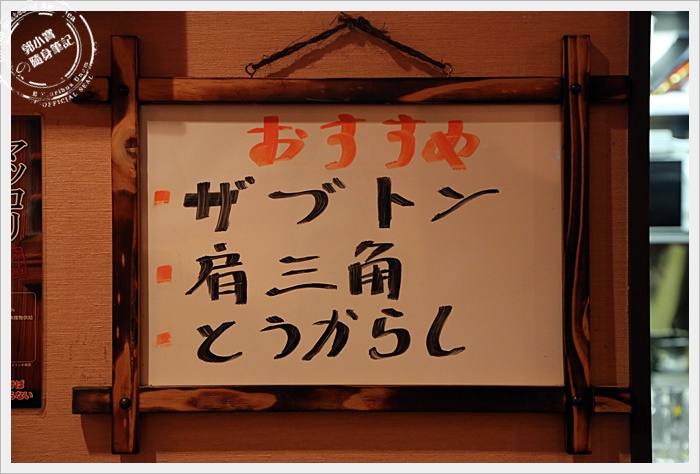 おすすめ
ザブトン
肩三角
とうがらし
マッコリ
郭小寶
の隨身筆記
OFFICIAL SEAL